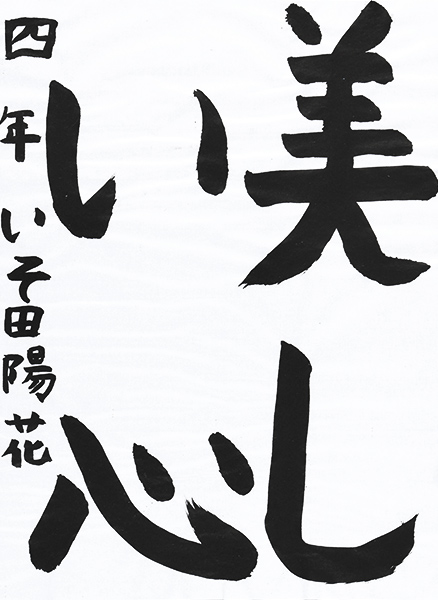 美し
い心
四年いそ田陽花